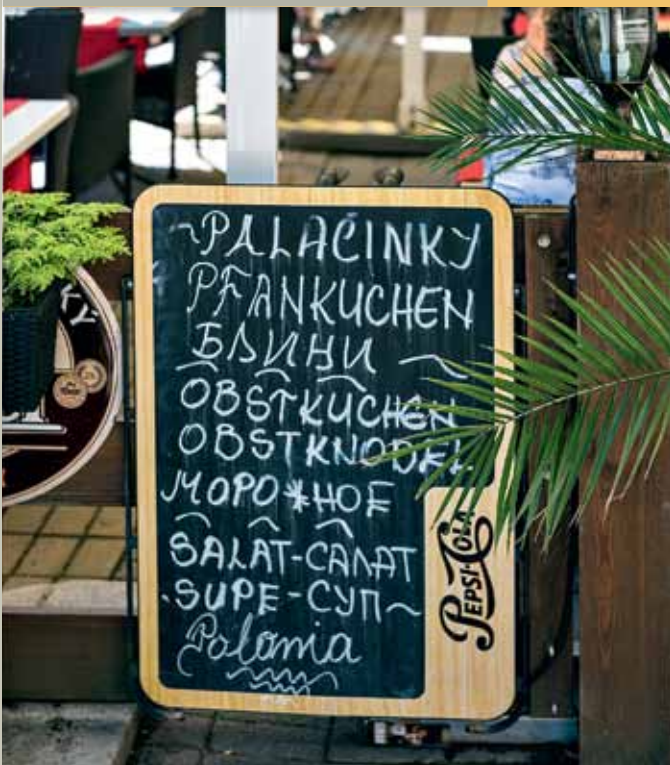 ~PALAČINKY
PFANKUCHEN
БЛИНИ ~
OBSTKUCHEN
OBSTKNÖDEL
МОРОЖНОЕ
SALAT-САЛАТ
SUPE-СУП~
Polonia
PEPSI-COLA